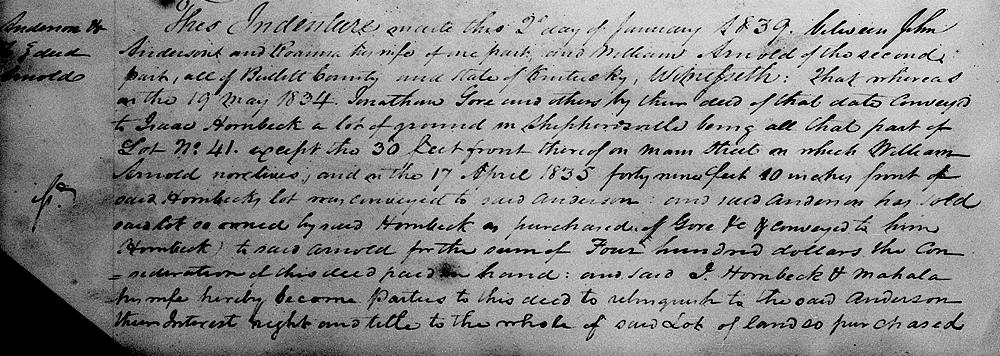 Anderson &
deed
Arnold
This Indenture made this 2d day of January 1839. between John
Anderson and Roanna his wife of one part, and William Arnold of the second
part, all of Bullitt County and State of Kentucky, Witnesseth: That whereas
on the 19 May 1834. Jonathan Gore and others by their deed of that date Conveyed
to Isaac Hornbeck a lot of ground in Shepherdsville being all that part of
Lot No. 41. except the 30 feet front thereof on main Street on which William
Arnold now lives, and on the 17 April 1835 forty nine feet 10 inches front of
said Hornbecks lot was conveyed to said Anderson: and said Anderson has sold
said lot so owned by said Hornbeck as purchased of Gore &c & conveyed to him
(Hornbeck) to said Arnold for the sum of Four hundred dollars the Con
=sideration of this deed paid in hand: and said I. Hornbeck & Mahala
his wife hereby become parties to this deed to relinquish to the said Anderson
their Interest right and title to the whole of said Lot of land so purchased